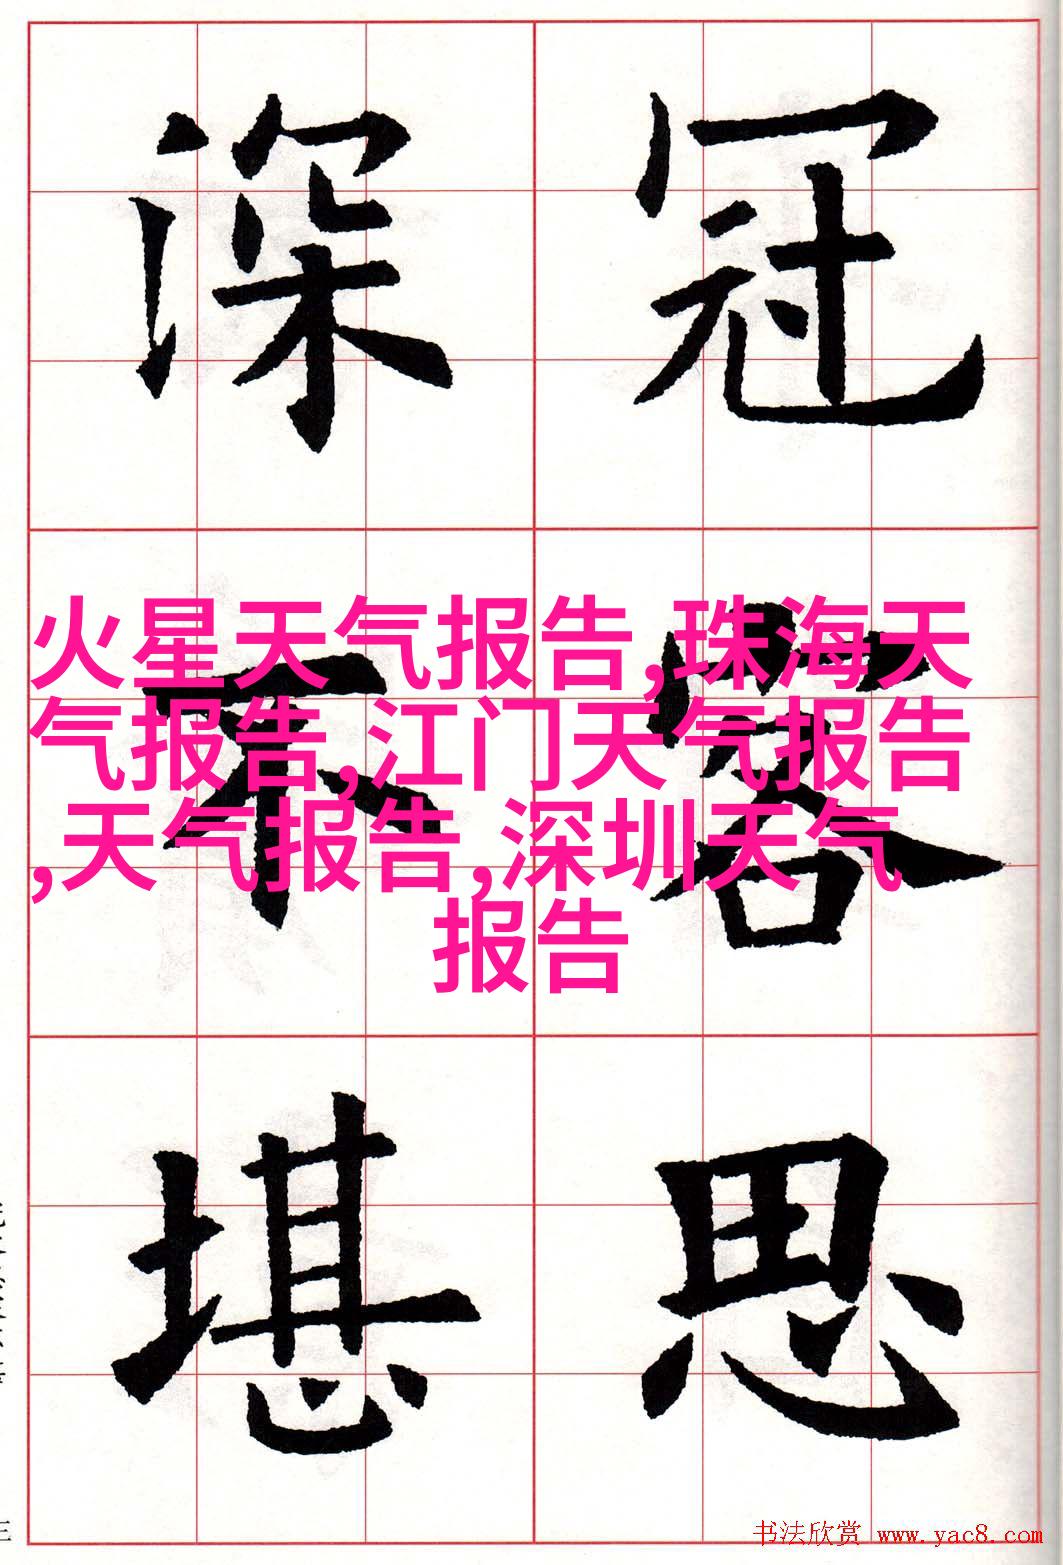 冠客思
深不堪
火星天气报告,珠海天
气报告,江门天气报告
,天气报告,深圳天气
报告
书法欣赏 www.yac8.com